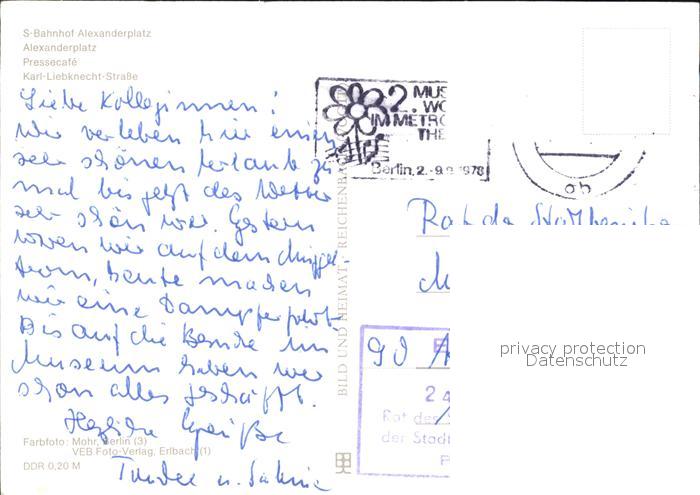 S-Bahnhof Alexanderplatz
Alexanderplatz
Pressecafé
Karl-Liebknecht-Straße
Liebe Kolleginnen!
Wir verleben hier einen
sehr schönen Urlaub zu
mal bis jetzt das Wetter
sehr schön war. Gestern
waren wir auf dem Müggel-
turm, heute machen
wir eine Dampferfahrt.
Bis auf die Besuche im
Museum haben wir
schon alles geschafft.
Herzliche Grüße
u. Sabine
Farbfoto: Mohr, Berlin (3)
VEB Foto-Verlag, Erlbach (1)
DDR 0,20 M
BILD UND HEIMAT REICHENBA
2. MUS
WO
IM METRO
THE
Berlin, 2.-9.9.1978
ob
Rat der Stadtbezirks
90
24
Rat des
der Stad
privacy protection
Datenschutz